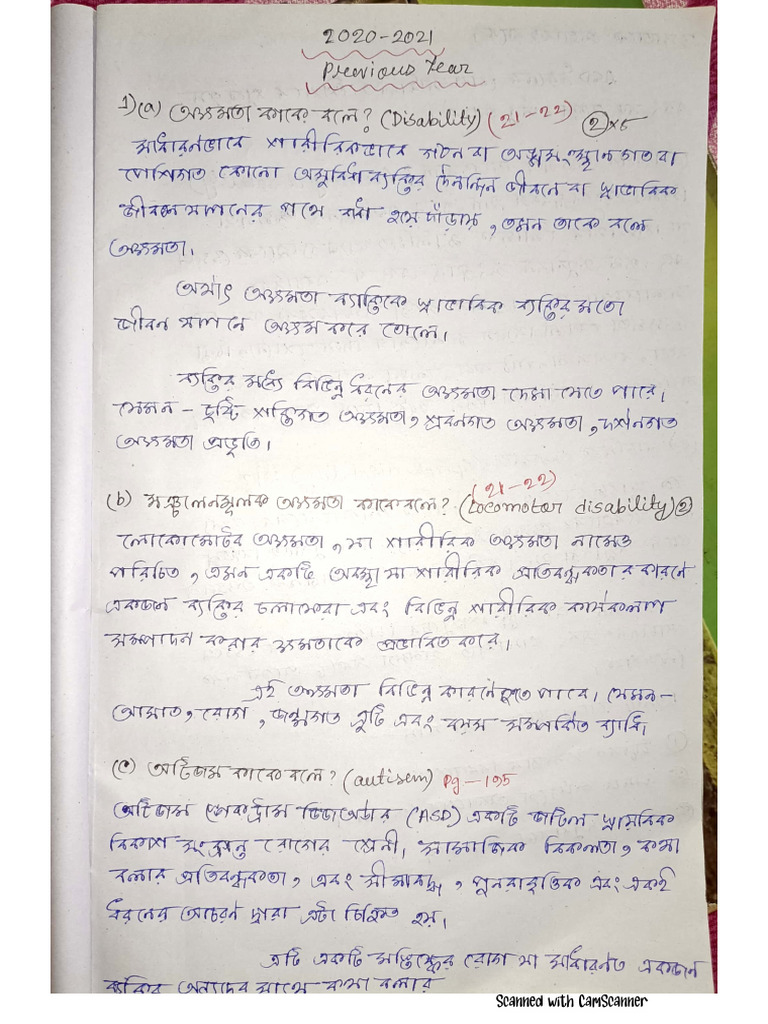 2020-2021
Previous Year
1)(a) অক্ষমতা কাকে বলে? (Disability) (21-22) ②×5
সাধারনভাবে শারীরিকভাবে গঠন বা অঙ্গসংস্থানগত বা
পেশিগত কোনো অসুবিধা ব্যক্তির দৈনন্দিন জীবনে বা স্বাভাবিক
জীবন যাপনের পথে বাধা হয়ে দাঁড়ায়, তখন তাকে বলে
অক্ষমতা।
অর্থাৎ অক্ষমতা ব্যক্তিকে স্বাভাবিক ব্যক্তির মতো
জীবন যাপনে অক্ষম করে তোলে।
ব্যক্তির মধ্যে বিভিন্ন ধরনের অক্ষমতা দেখা যেতে পারে।
যেমন - দৃষ্টি শক্তিগত অক্ষমতা, শ্রবনগত অক্ষমতা, দর্শনগত
অক্ষমতা প্রভৃতি।
(21-22)
(b) সঞ্চালনমূলক অক্ষমতা কাকে বলে? (Locomotor disability) ②
লোকোমোটর অক্ষমতা, যা শারীরিক অক্ষমতা নামেও
পরিচিত, এমন একটি অবস্থা যা শারীরিক প্রতিবন্ধকতার কারনে
একজন ব্যক্তির চলাফেরা এবং বিভিন্ন শারীরিক কার্যকলাপ
সম্পাদন করার ক্ষমতাকে প্রভাবিত করে।
এই অক্ষমতা বিভিন্ন কারনে হতে পারে। যেমন-
আঘাত, রোগ, জন্মগত ত্রুটি এবং বয়স সম্পর্কিত ব্যাধি।
(c) অটিজম কাকে বলে? (autisem) Pg-195
অটিজম স্পেকট্রাম ডিজঅর্ডার (ASD) একটি জটিল স্নায়বিক
বিকাশ সংক্রান্ত রোগের শ্রেনী। সামাজিক বিকলতা, কথা
বলার প্রতিবন্ধকতা, এবং সীমাবদ্ধ, পুনরাবৃত্তিক এবং একই
ধরনের আচরণ দ্বারা এটা চিহ্নিত হয়।
এটি একটি মস্তিষ্কের রোগ যা সাধারনত একজন
ব্যক্তির অন্যদের সাথে কথা বলার
Scanned with CamScanner